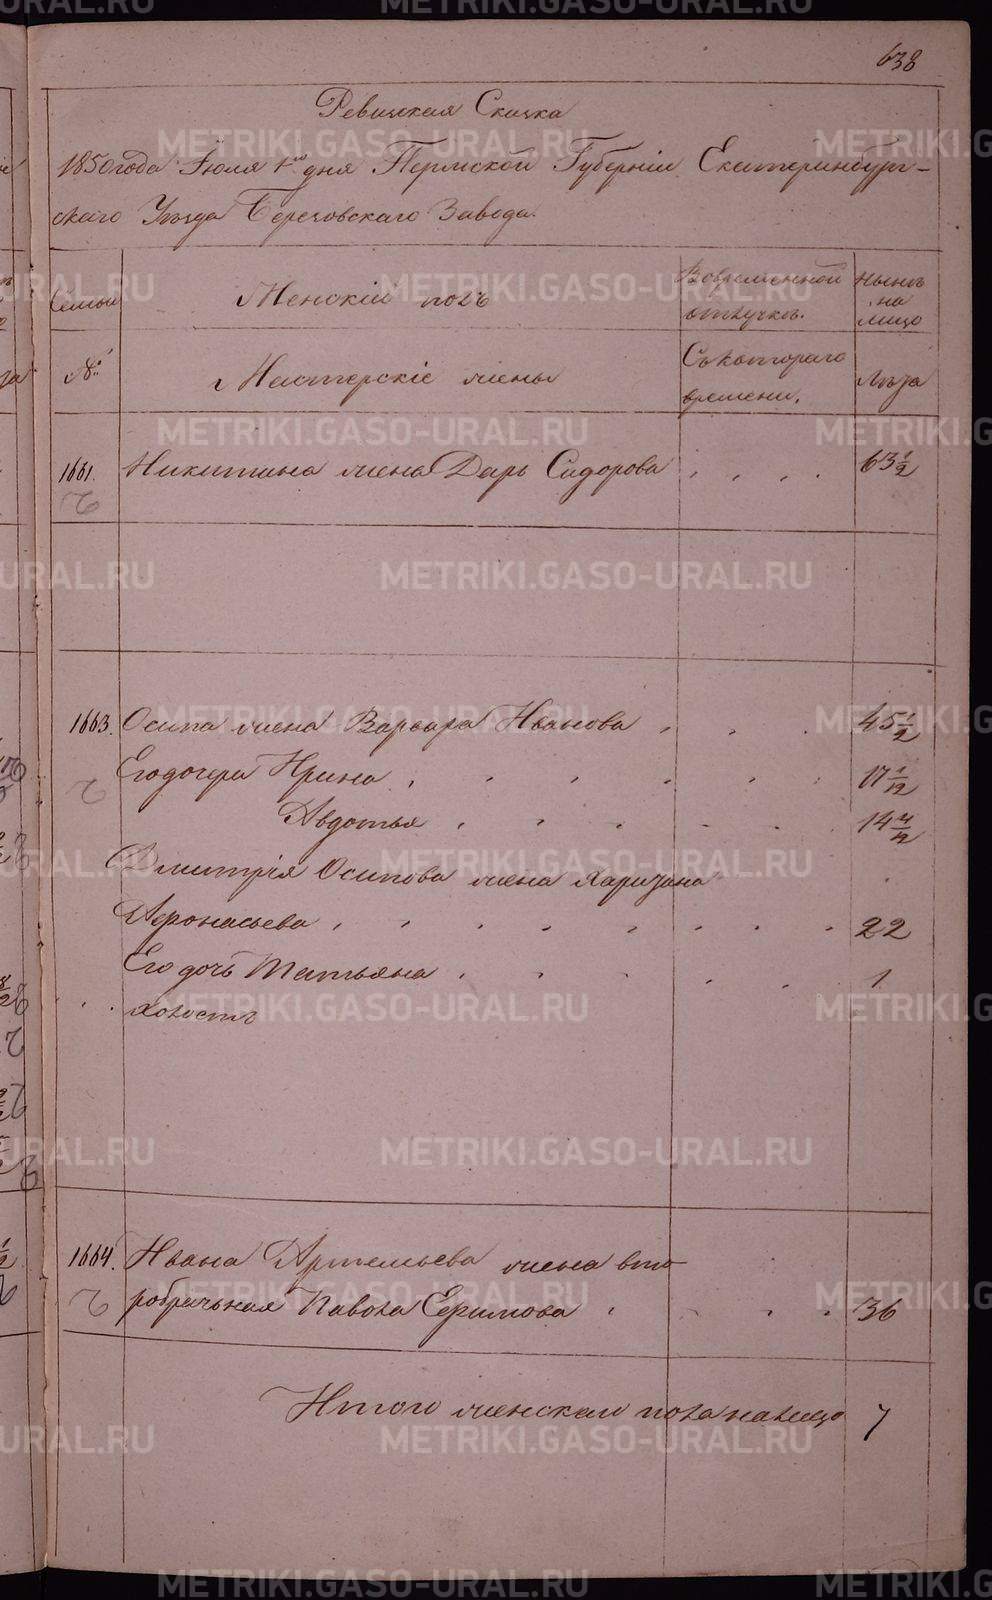 638
Ревижская Скизка
1850 года Июля 1го дня Пермской Губерніи Екатеринбург-
скаго Уѣзда Березовскаго Завода.
Семьи
Женскій полъ
Во временной
отлучкѣ.
Нынѣ
на
лицо
№
Мастерскіе жены
Съ котораго
времени.
Лѣта
1661. Никитина жена Дарь Сидорова 63 1/2
1663. Осипа жена Варвара Иванова 45 1/2
Его дочери Ирина 17 1/12
Авдотья 14 4/12
Дмитрія Осипова жена Харитана
Афонасьева 22
Его дочь Татьяна 1
холостъ
1664. Ивана Артемьева жена вто
робрачьная Павола Ефимова 36
Итого женскаго пола на лицо 7
METRIKI.GASO-URAL.RU